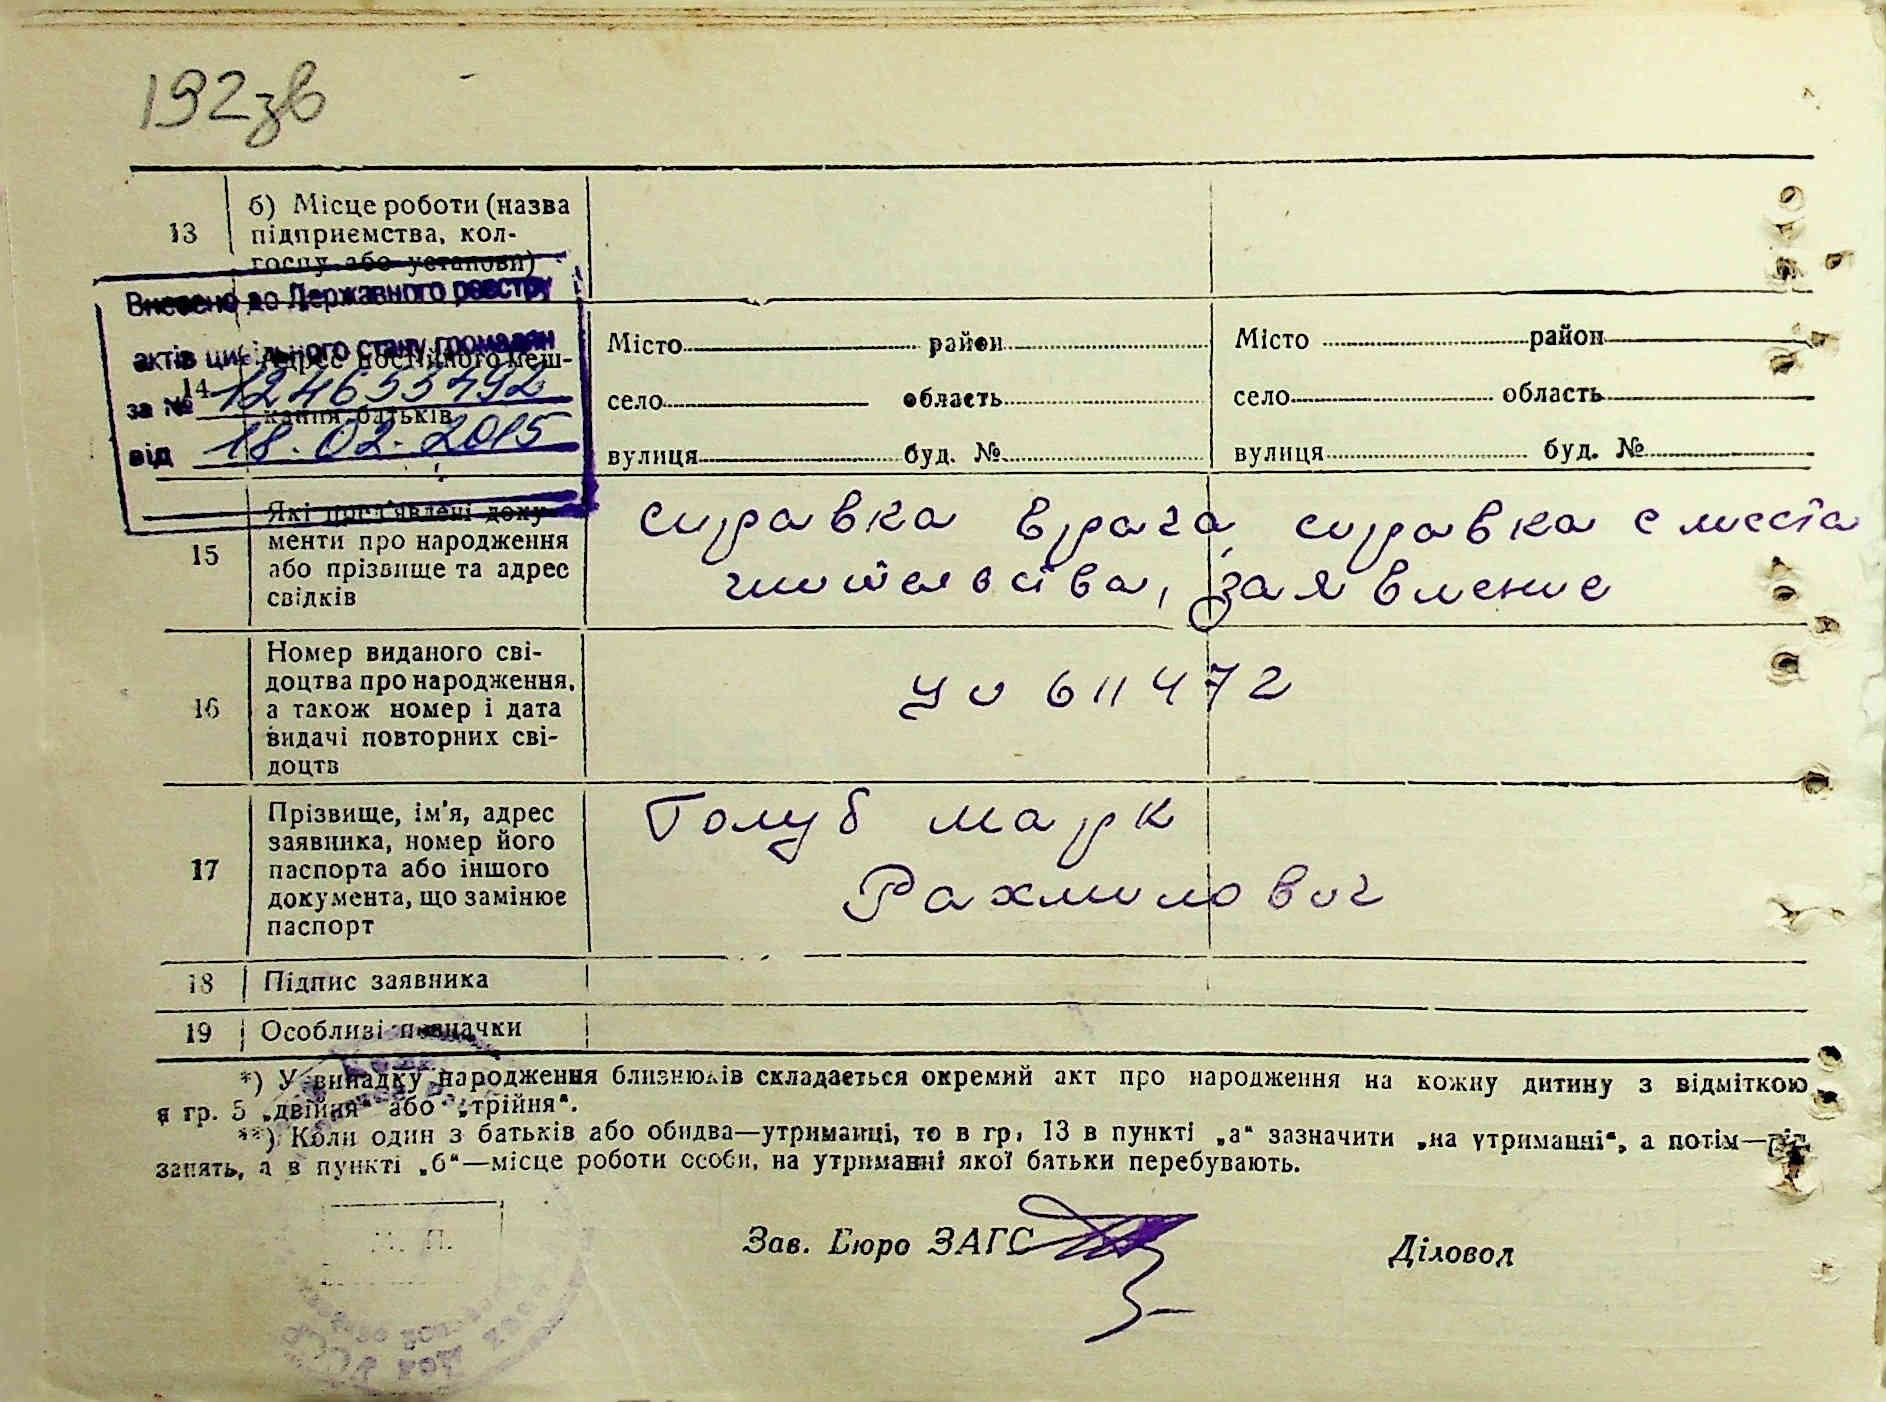 192зв
13
б) Місце роботи (назва
підприємства, кол-
госпу або установи)
Внесено до Державного реєстру
актів цивільного стану громадян
за №
від 18.02.2015
14
Адрес постійного меш-
кання батьків
Місто район
село область
вулиця буд. №
Місто район
село область
вулиця буд. №
15
Які пред'явлені доку-
менти про народження
або прізвище та адрес
свідків
справка врача, справка с места
жительства, заявление
16
Номер виданого сві-
доцтва про народження,
а також номер і дата
видачі повторних сві-
доцтв
611472
17
Прізвище, ім'я, адрес
заявника, номер його
паспорта або іншого
документа, що замінює
паспорт
Голуб Марк
Рахмилович
18 Підпис заявника
19 Особливі позначки
*) У випадку народження близнюків складається окремий акт про народження на кожну дитину з відміткою
в гр. 5 „двійня“ або „трійня“.
**) Коли один з батьків або обидва—утриманці, то в гр. 13 в пункті „а“ зазначити „на утриманні“, а потім—рід
занять, а в пункті „б“—місце роботи особи, на утриманні якої батьки перебувають.
М. П.
Зав. Бюро ЗАГС
Діловод